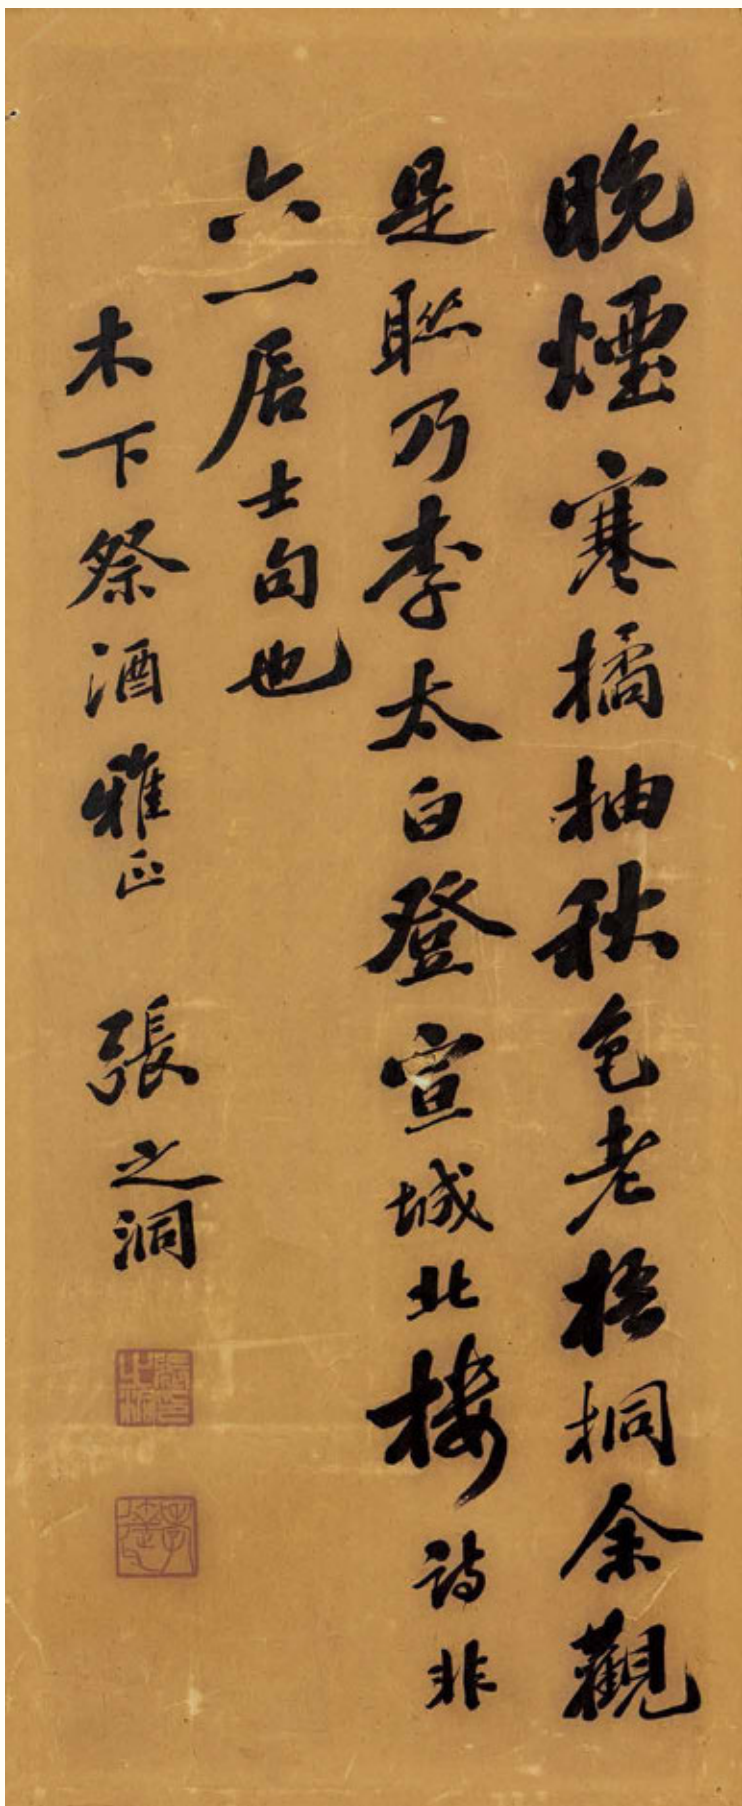 晚煙寒橘柚秋色老梧桐余觀
是聯乃李太白登宣城北樓詩非
六一居士句也
木下祭酒雅正
張之洞
張之洞印